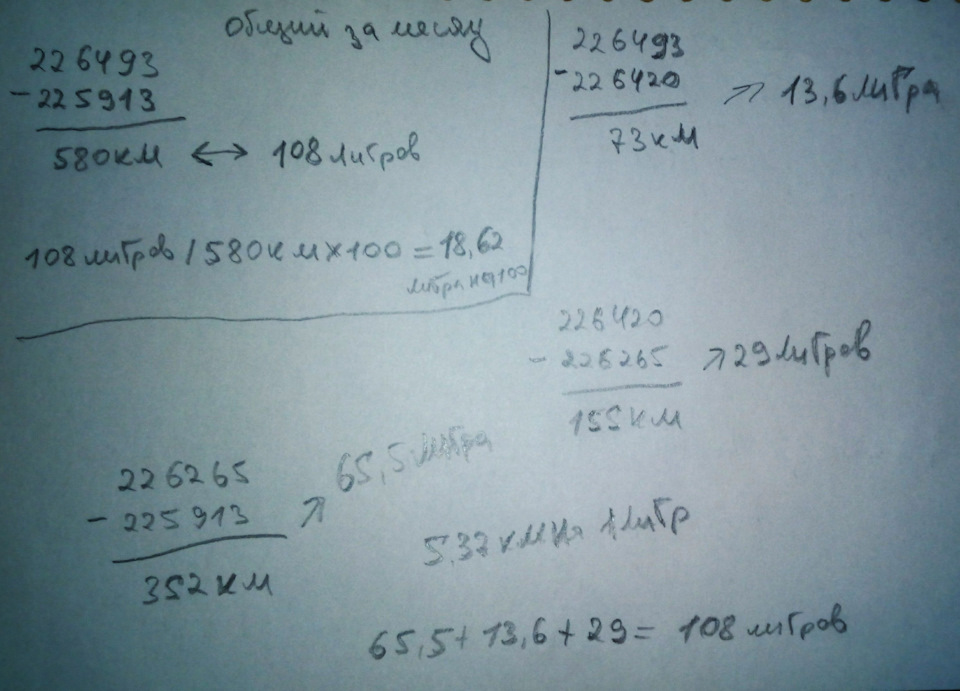 общий за месяц
226493
- 225913
580 км ↔ 108 литров
108 литров / 580 км × 100 = 18,62
литра на 100
226493
- 226420 → 13,6 литра
73 км
226420
- 226265 → 29 литров
155 км
226265
- 225913 → 65,5 литра
352 км
5,37 км на 1 литр
65,5 + 13,6 + 29 = 108 литров